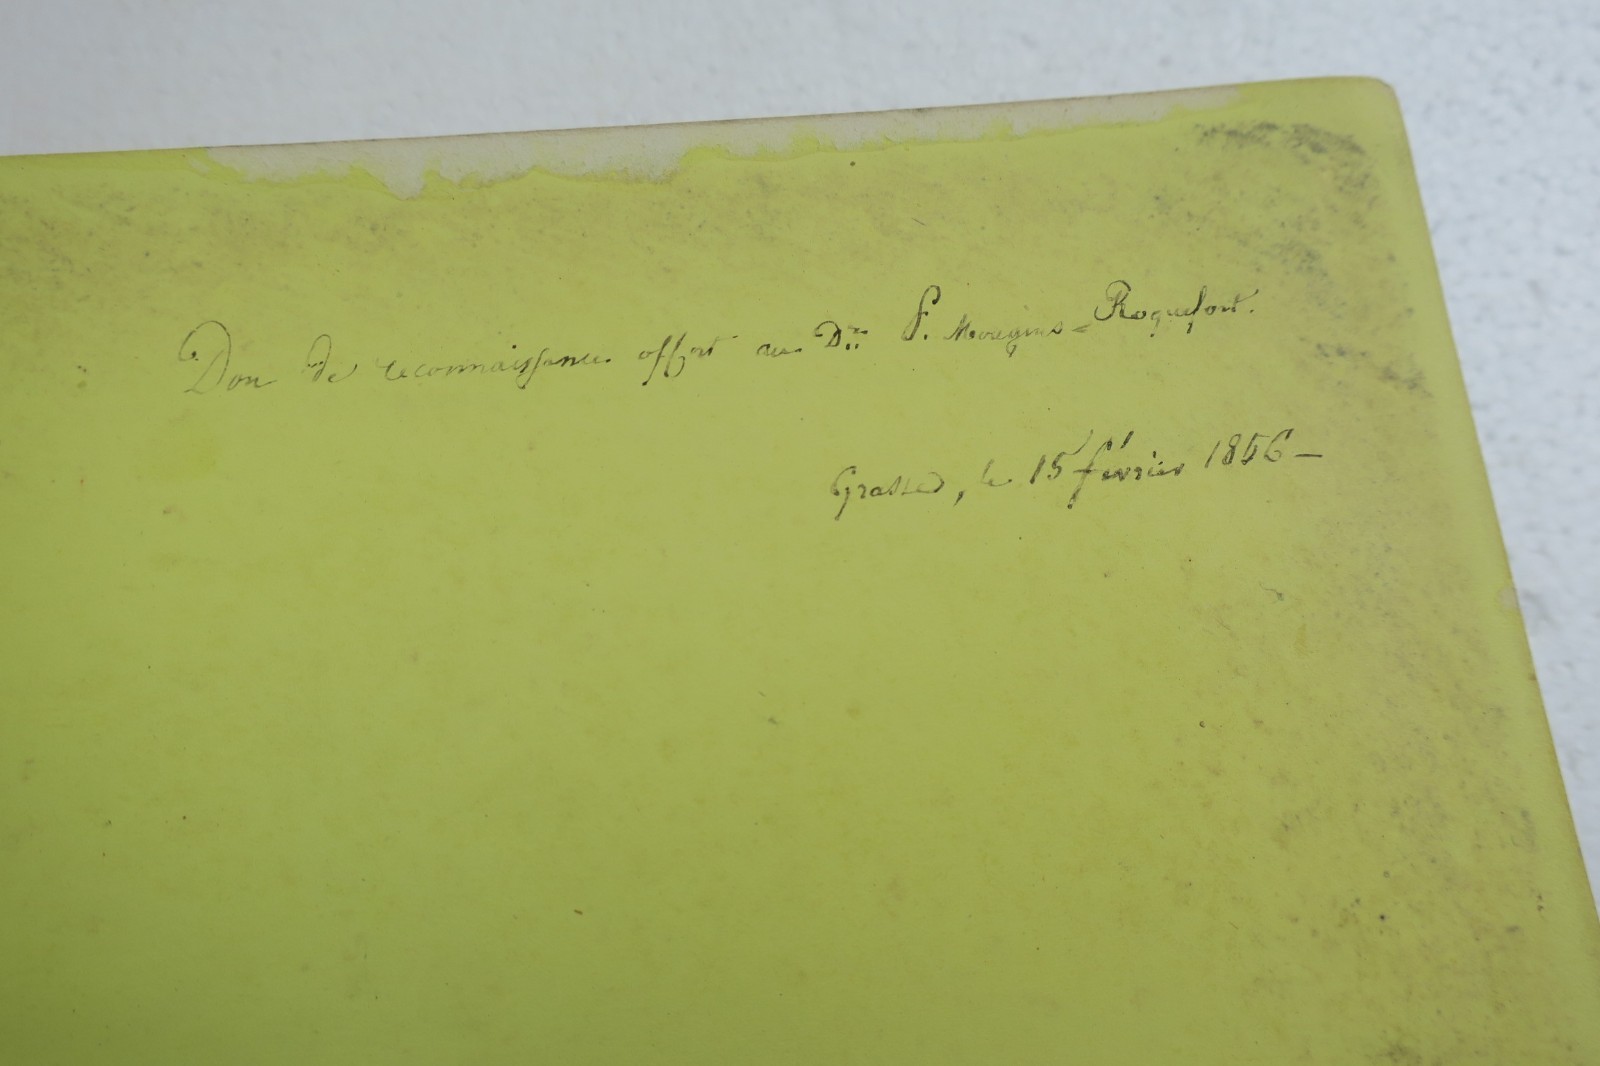 Don de reconnaissance offert au Dr. P. Mougins-Roquefort.
Grasse, le 15 février 1856 —